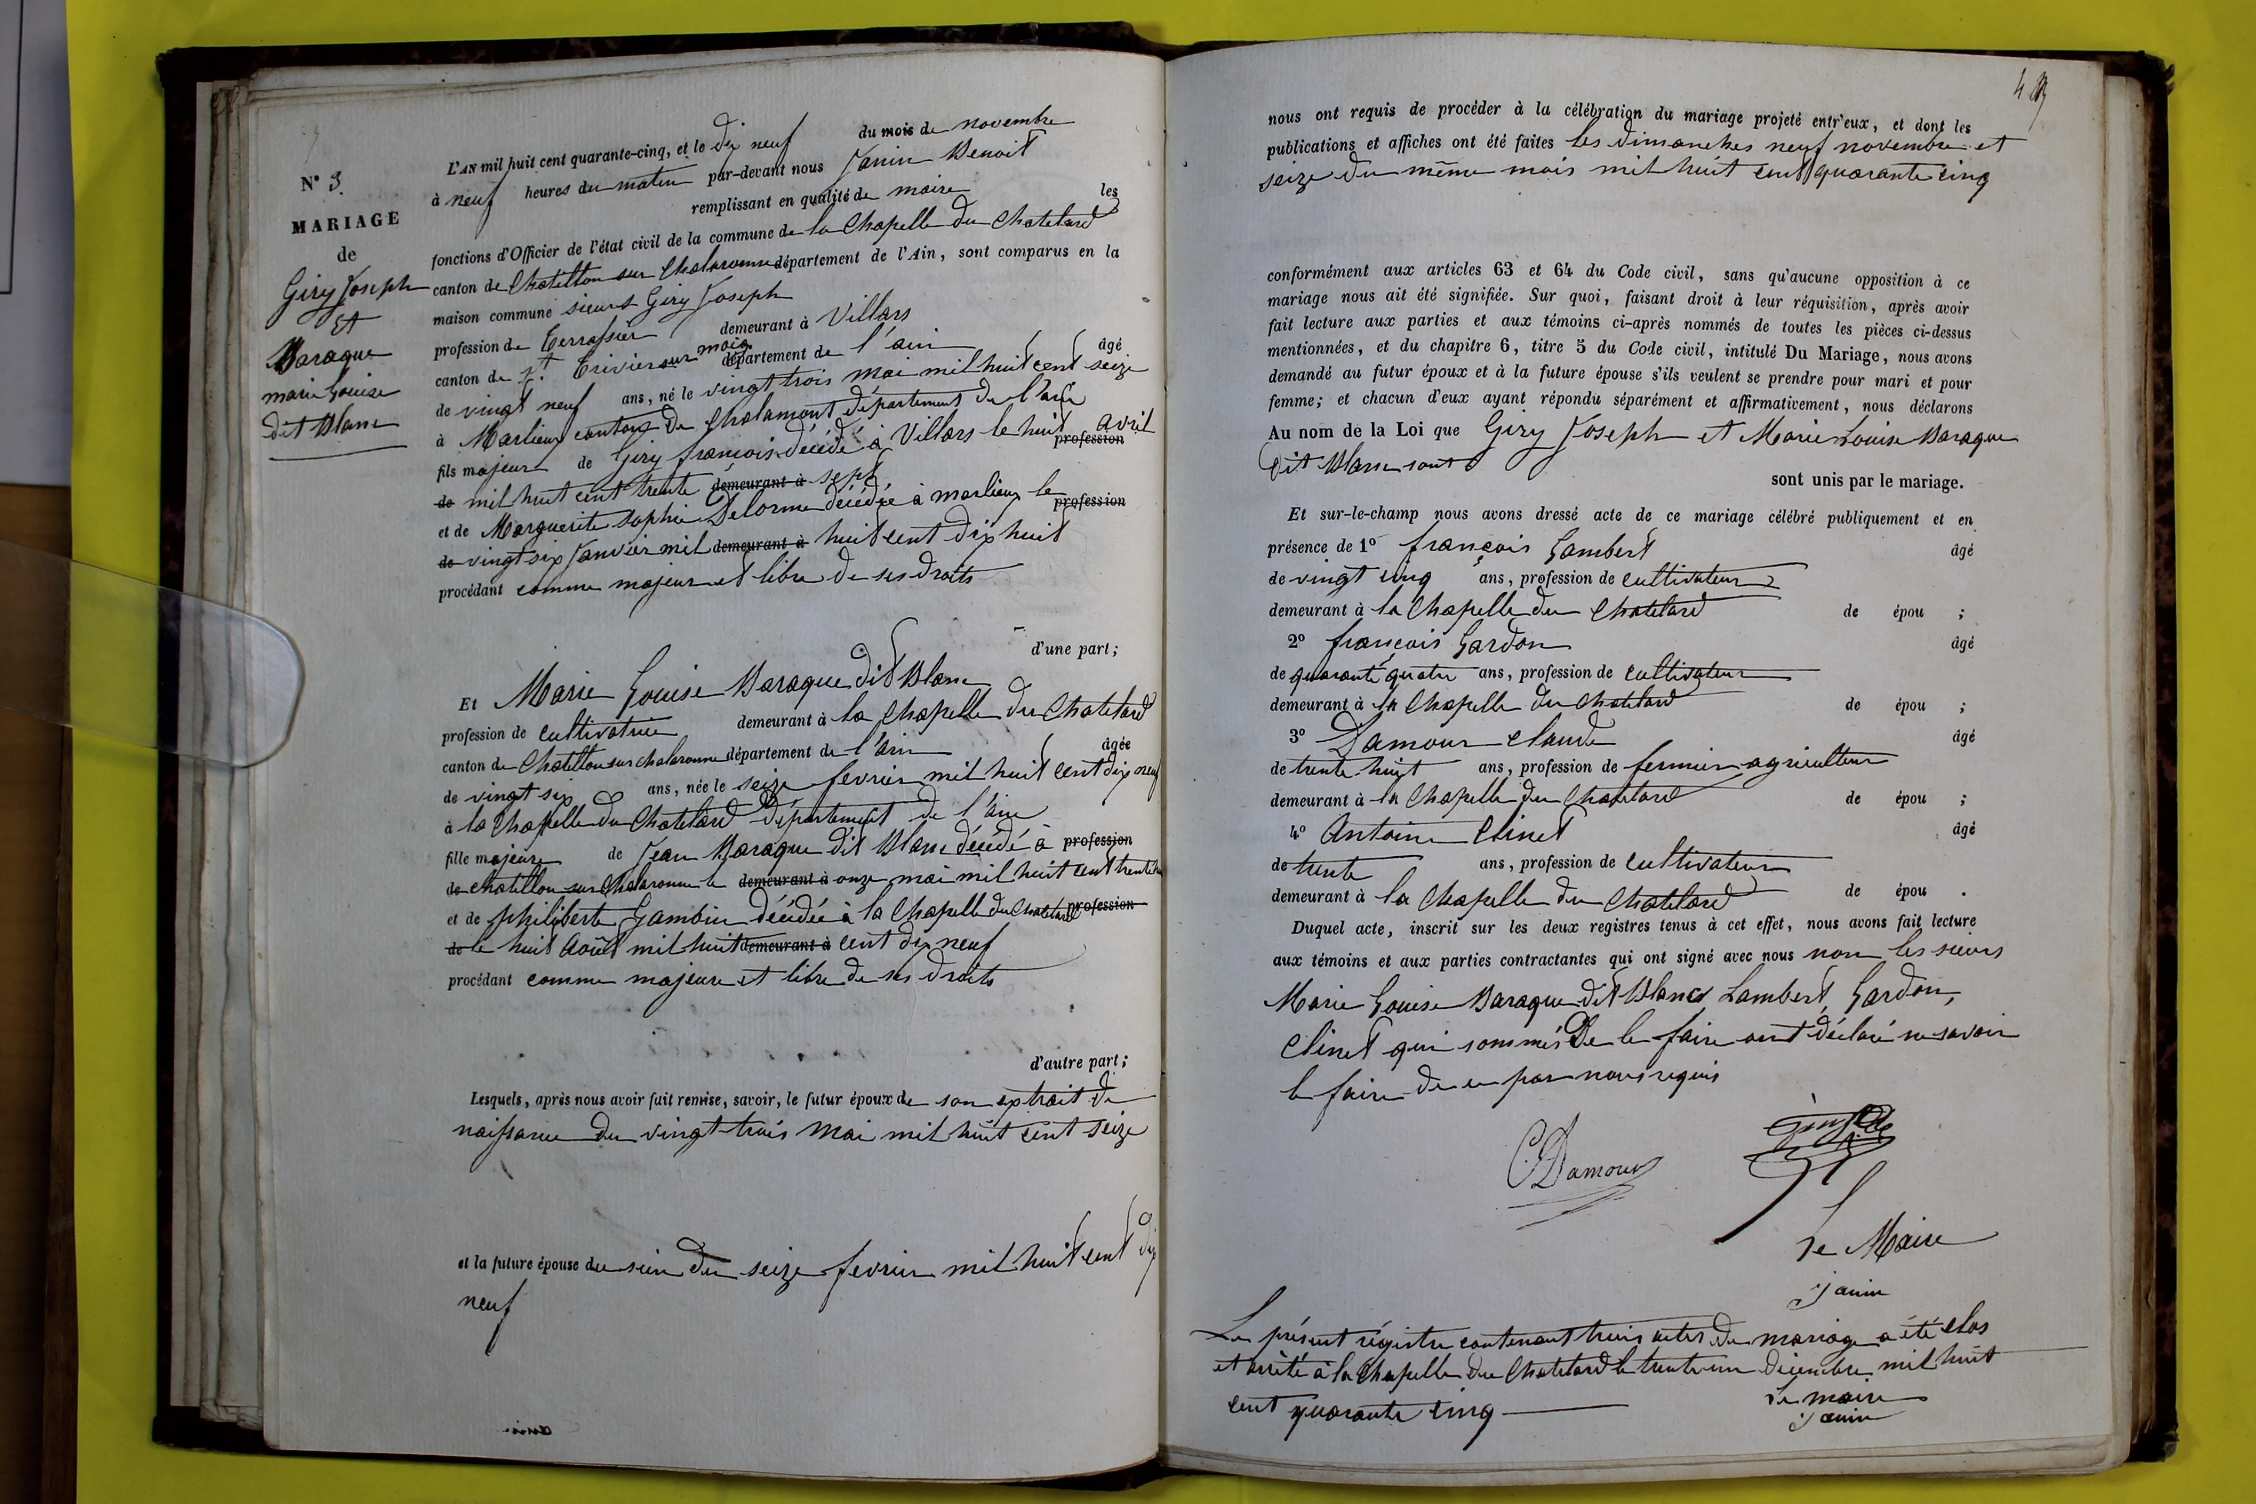 N° 3.
MARIAGE
de
Giry Joseph
Et
Baraque
marie Louise
dit Blanc
L'AN mil huit cent quarante-cinq, et le dix neuf du mois de novembre
à neuf heures du matin par-devant nous Janin Benoit
remplissant en qualité de maire les
fonctions d'Officier de l'état civil de la commune de la Chapelle du Chatelard
canton de Chatillon sur Chalaronne département de l'Ain, sont comparus en la
maison commune sieurs Giry Joseph
profession de Terrassier demeurant à Villars
canton de St. Trivier sur moig département de l'ain âgé
de vingt neuf ans, né le vingt trois mai mil huit cent seize
à Marlieux canton de Chalamont département de l'ain
fils majeur de Giry françois décédé à Villars le huit avril profession
de mil huit cent trente demeurant à sept
et de Marguerite Sophie Delorme décédée à marlieux le profession
de vingt six Janvier mil demeurant à huit cent dix huit
procédant comme majeur et libre de ses droits
d'une part;
Et Marie Louise Baraque dit Blanc
profession de cultivatrice demeurant à la Chapelle du Chatelard
canton de Chatillon sur chalaronne département de l'ain âgée
de vingt six ans, née le seize fevrier mil huit cent dix neuf
à la Chapelle du Chatelard département de l'ain
fille majeure de Jean Baraque dit Blanc décédé à profession
de chatillon sur Chalaronne le demeurant à onze mai mil huit cent
et de philiberte Gambin décédée à la Chapelle du Chatelard profession
de le huit Août mil huit demeurant à cent dix neuf
procédant comme majeure et libre de ses droits
d'autre part;
Lesquels, après nous avoir fait remise, savoir, le futur époux de son extrait de
naissance du vingt-trois mai mil huit cent seize
et la future épouse du sien du seize fevrier mil huit cent dix
neuf
nous ont requis de procéder à la célébration du mariage projeté entr'eux, et dont les
publications et affiches ont été faites les dimanches neuf novembre et
seize du même mois mil huit cent quarante cinq
conformément aux articles 63 et 64 du Code civil, sans qu'aucune opposition à ce
mariage nous ait été signifiée. Sur quoi, faisant droit à leur réquisition, après avoir
fait lecture aux parties et aux témoins ci-après nommés de toutes les pièces ci-dessus
mentionnées, et du chapitre 6, titre 5 du Code civil, intitulé Du Mariage, nous avons
demandé au futur époux et à la future épouse s'ils veulent se prendre pour mari et pour
femme; et chacun d'eux ayant répondu séparément et affirmativement, nous déclarons
Au nom de la Loi que Giry Joseph et Marie Louise Baraque
dit Blanc sont
sont unis par le mariage.
Et sur-le-champ nous avons dressé acte de ce mariage célébré publiquement et en
présence de 1° françois Lambert âgé
de vingt cinq ans, profession de cultivateur
demeurant à la Chapelle du Chatelard de épou ;
2° françois Gardon âgé
de quarante quatre ans, profession de cultivateur
demeurant à la Chapelle du Chatelard de épou ;
3° Damour claude âgé
de trente huit ans, profession de fermier agriculteur
demeurant à la Chapelle du Chatelard de épou ;
4° Antoine Clinet âgé
de trente ans, profession de cultivateur
demeurant à la Chapelle du Chatelard de épou .
Duquel acte, inscrit sur les deux registres tenus à cet effet, nous avons fait lecture
aux témoins et aux parties contractantes qui ont signé avec nous non les sieurs
Marie Louise Baraque dit Blanc Lambert, Gardon,
Clinet qui sommés de le faire ont déclaré ne savoir
le faire de ce par nous requis
C. Damour
Le Maire
Janin
Le présent régistre contenant trois actes de mariage a été clos
et arrêté à la Chapelle du Chatelard le trente un décembre mil huit
cent quarante cinq
Le maire
Janin